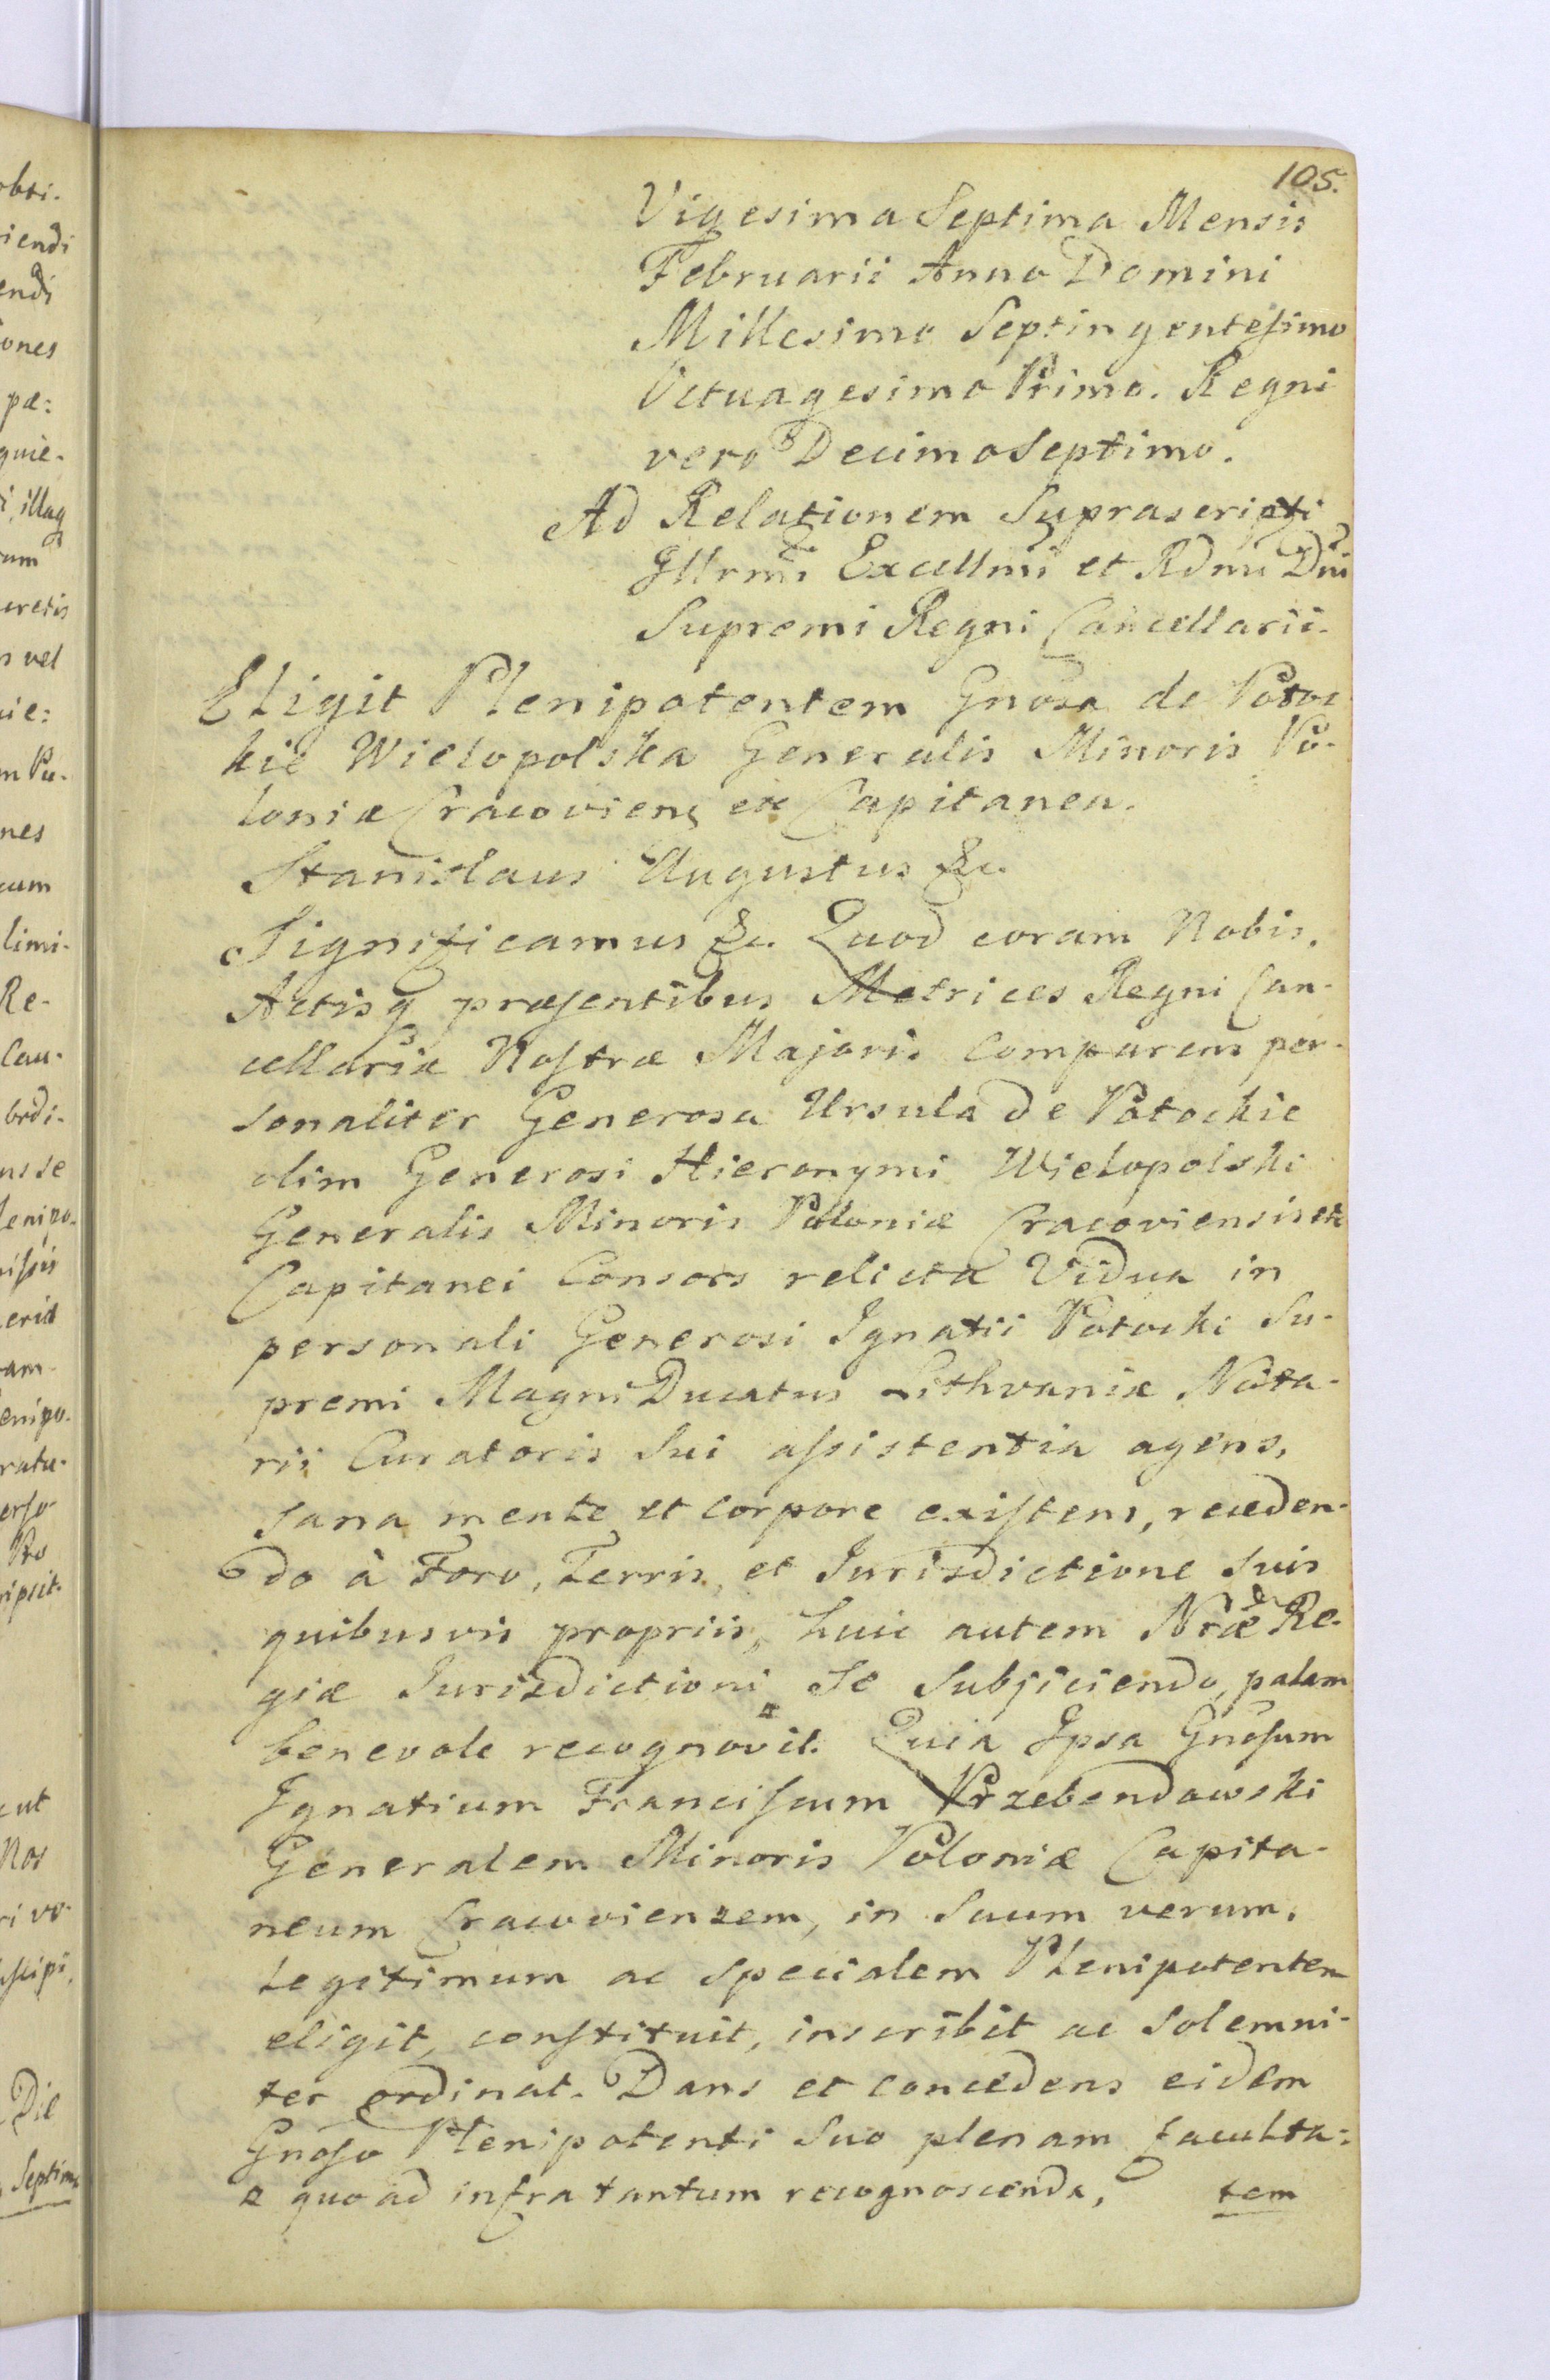 105.
Vigesima Septima Mensis
Februarii Anno Domini
Millesimo Septingentesimo
Octuagesimo Primo. Regni
vero Decimo Septimo.
Ad Relationem Suprascripti
Illrmi Excellmi et Rdmi Dni
Supremi Regni Cancellarii.
Eligit Plenipotentem Gnosa de Potoc
kie Wielopolska Generalis Minoris Po-
loniæ Cracovien etc Capitanea.
Stanislaus Augustus &c.
Significamus &c. Quod coram Nobis,
Actisq præsentibus Metrices Regni Can-
cellariæ Nostræ Majoris Comparens per-
sonaliter Generosa Ursula de Potockie
olim Generosi Hieronymi Wielopolski
Generalis Minoris Poloniæ Cracoviensis etc
Capitanei Consors relicta Vidua in
personali Generosi Ignatii Potocki Su-
premi Magni Ducatus Lithvaniæ Nota-
rii Curatoris Sui assistentia agens,
sana mente et corpore existens, receden-
do à Foro, Terris, et Jurisdictione suis
quibusvis propriis, huic autem Nræ Re-
giæ Jurisdictioni se Subjiciendo, palam
benevole recognovit. Quia Ipsa Gnosum
Ignatium Franciscum Przebendowski
Generalem Minoris Poloniæ Capita-
neum Cracoviensem, in Suum verum,
Legitimum ac specialem Plenipotentem
eligit, constituit, inscribit ac Solemni-
ter ordinat. Dans et concedens eidem
Gnoso Plenipotenti Suo plenam faculta-
quo ad infra tantum recognoscenda, tem
obti-
iendi
endi
ones
pæ:
quie-
illaq
um
cretis
vel
ie:
m Pu-
nes
cum
limi-
Re-
Cau-
ordi-
ns se
lenipo-
am
enipo-
ratu-
Pro
ripsit.
cut
Nos
ri vo-
Die
Septima